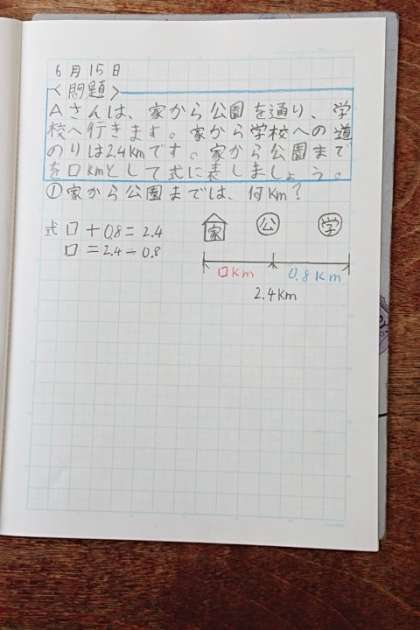 6月15日
<問題>
Aさんは、家から公園を通り、学
校へ行きます。家から学校への道
のりは2.4kmです。家から公園まで
を口kmとして式に表しましょう。
①家から公園までは、何km?
家 公 学
式 口+0.8=2.4
口=2.4-0.8
口km 0.8km
2.4km